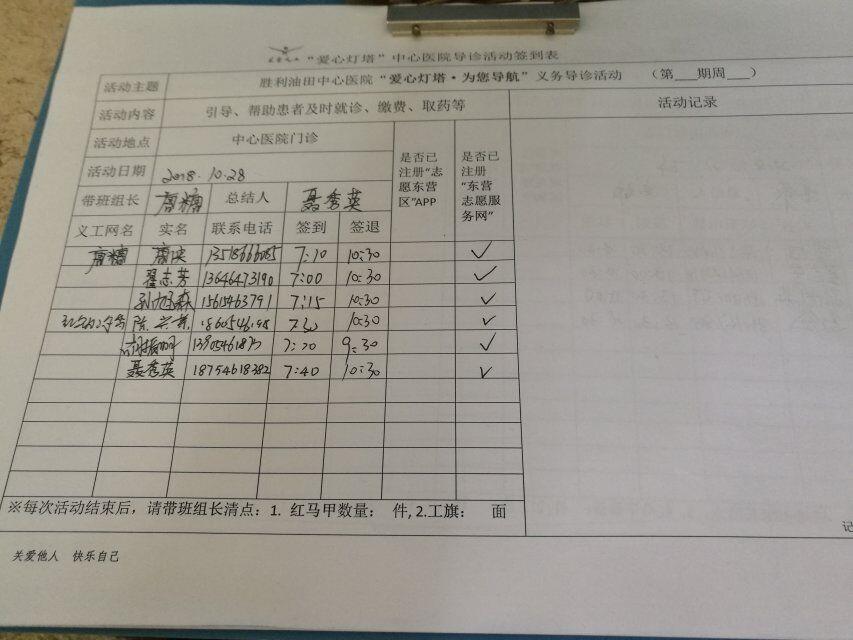 “爱心灯塔”中心医院导诊活动签到表
活动主题 胜利油田中心医院“爱心灯塔·为您导航”义务导诊活动 （第___期周___）
活动内容 引导、帮助患者及时就诊、缴费、取药等 活动记录
活动地点 中心医院门诊 是否已注册“志愿东营区”APP 是否已注册“东营志愿服务网”
活动日期 2018.10.28
带班组长 总结人 聂秀英
义工网名 实名 联系电话 签到 签退
7:10 10:30 ✓
翟志芳 13646473190 7:00 10:30 ✓
15615463791 7:15 10:30 ✓
陈 10:30 ✓
7:20 9:30 ✓
聂秀英 18754618382 7:40 10:30 ✓
※每次活动结束后，请带班组长清点：1. 红马甲数量： 件, 2.工旗： 面
记
关爱他人 快乐自己